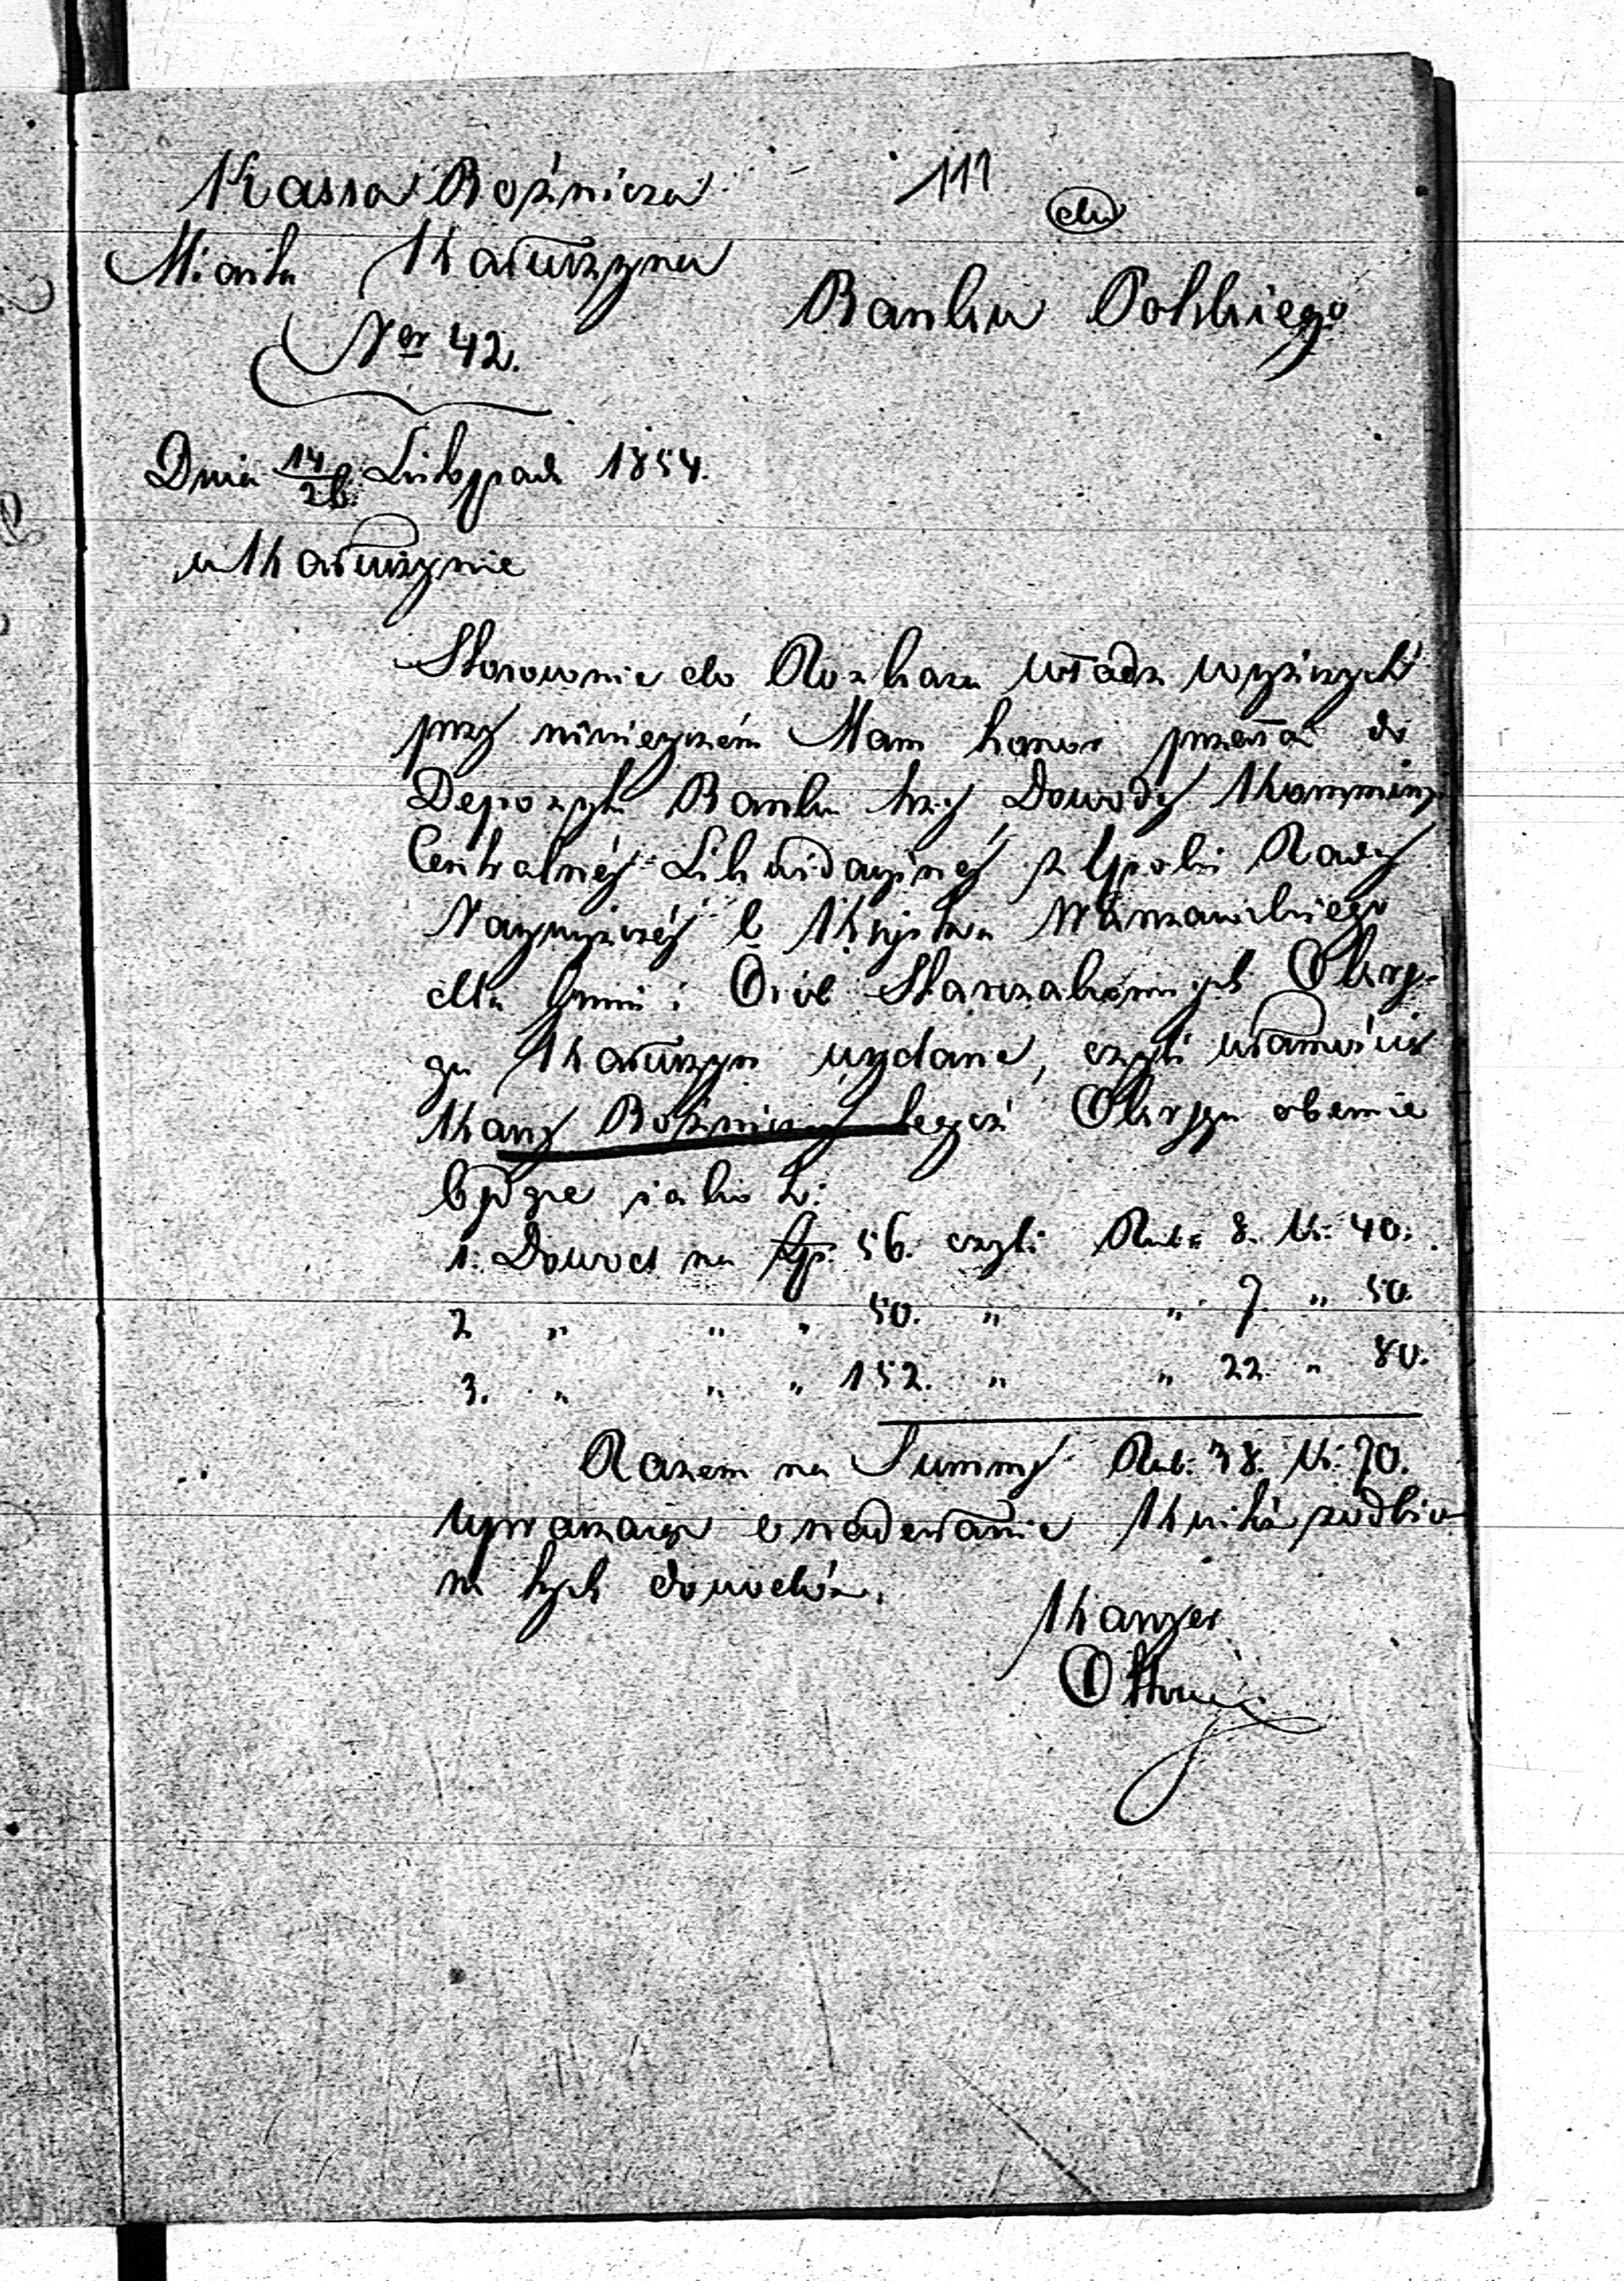 Kassa Bożnicza
111
Miasta Kałuszyna
do
Banku Polskiego
Ner 42.
Dnia 14/26 Listopada 1854.
w Kałuszynie
Stosownie do Rozkazu władz wyższych
przy ninieyszém Mam honor przesłać do
Depozytu Banku trzy Dowody Kommissyi
Centralnéj Likwidacyinéj z Epoki Rady
Naywyższéj b Księstwa Warszawskiego
dla Gmin i Osób Starozakonnych Okrę-
gu Kałuszyn wydane, czyli własnością
Kassy Bożniczéj tegoż Okręgu obecnie
będące iako to:
1. Dowod na złp. 56. czyli Rub: 8. K: 40.
2 " " " 50. " " 7. " 50.
3. " " " 152. " " 22. " 80.
Razem na Summę Rub: 38. K: 70.
upraszaiąc o nadesłanie Kwitu z odbio-
ru tych dowodów.
Kassyer